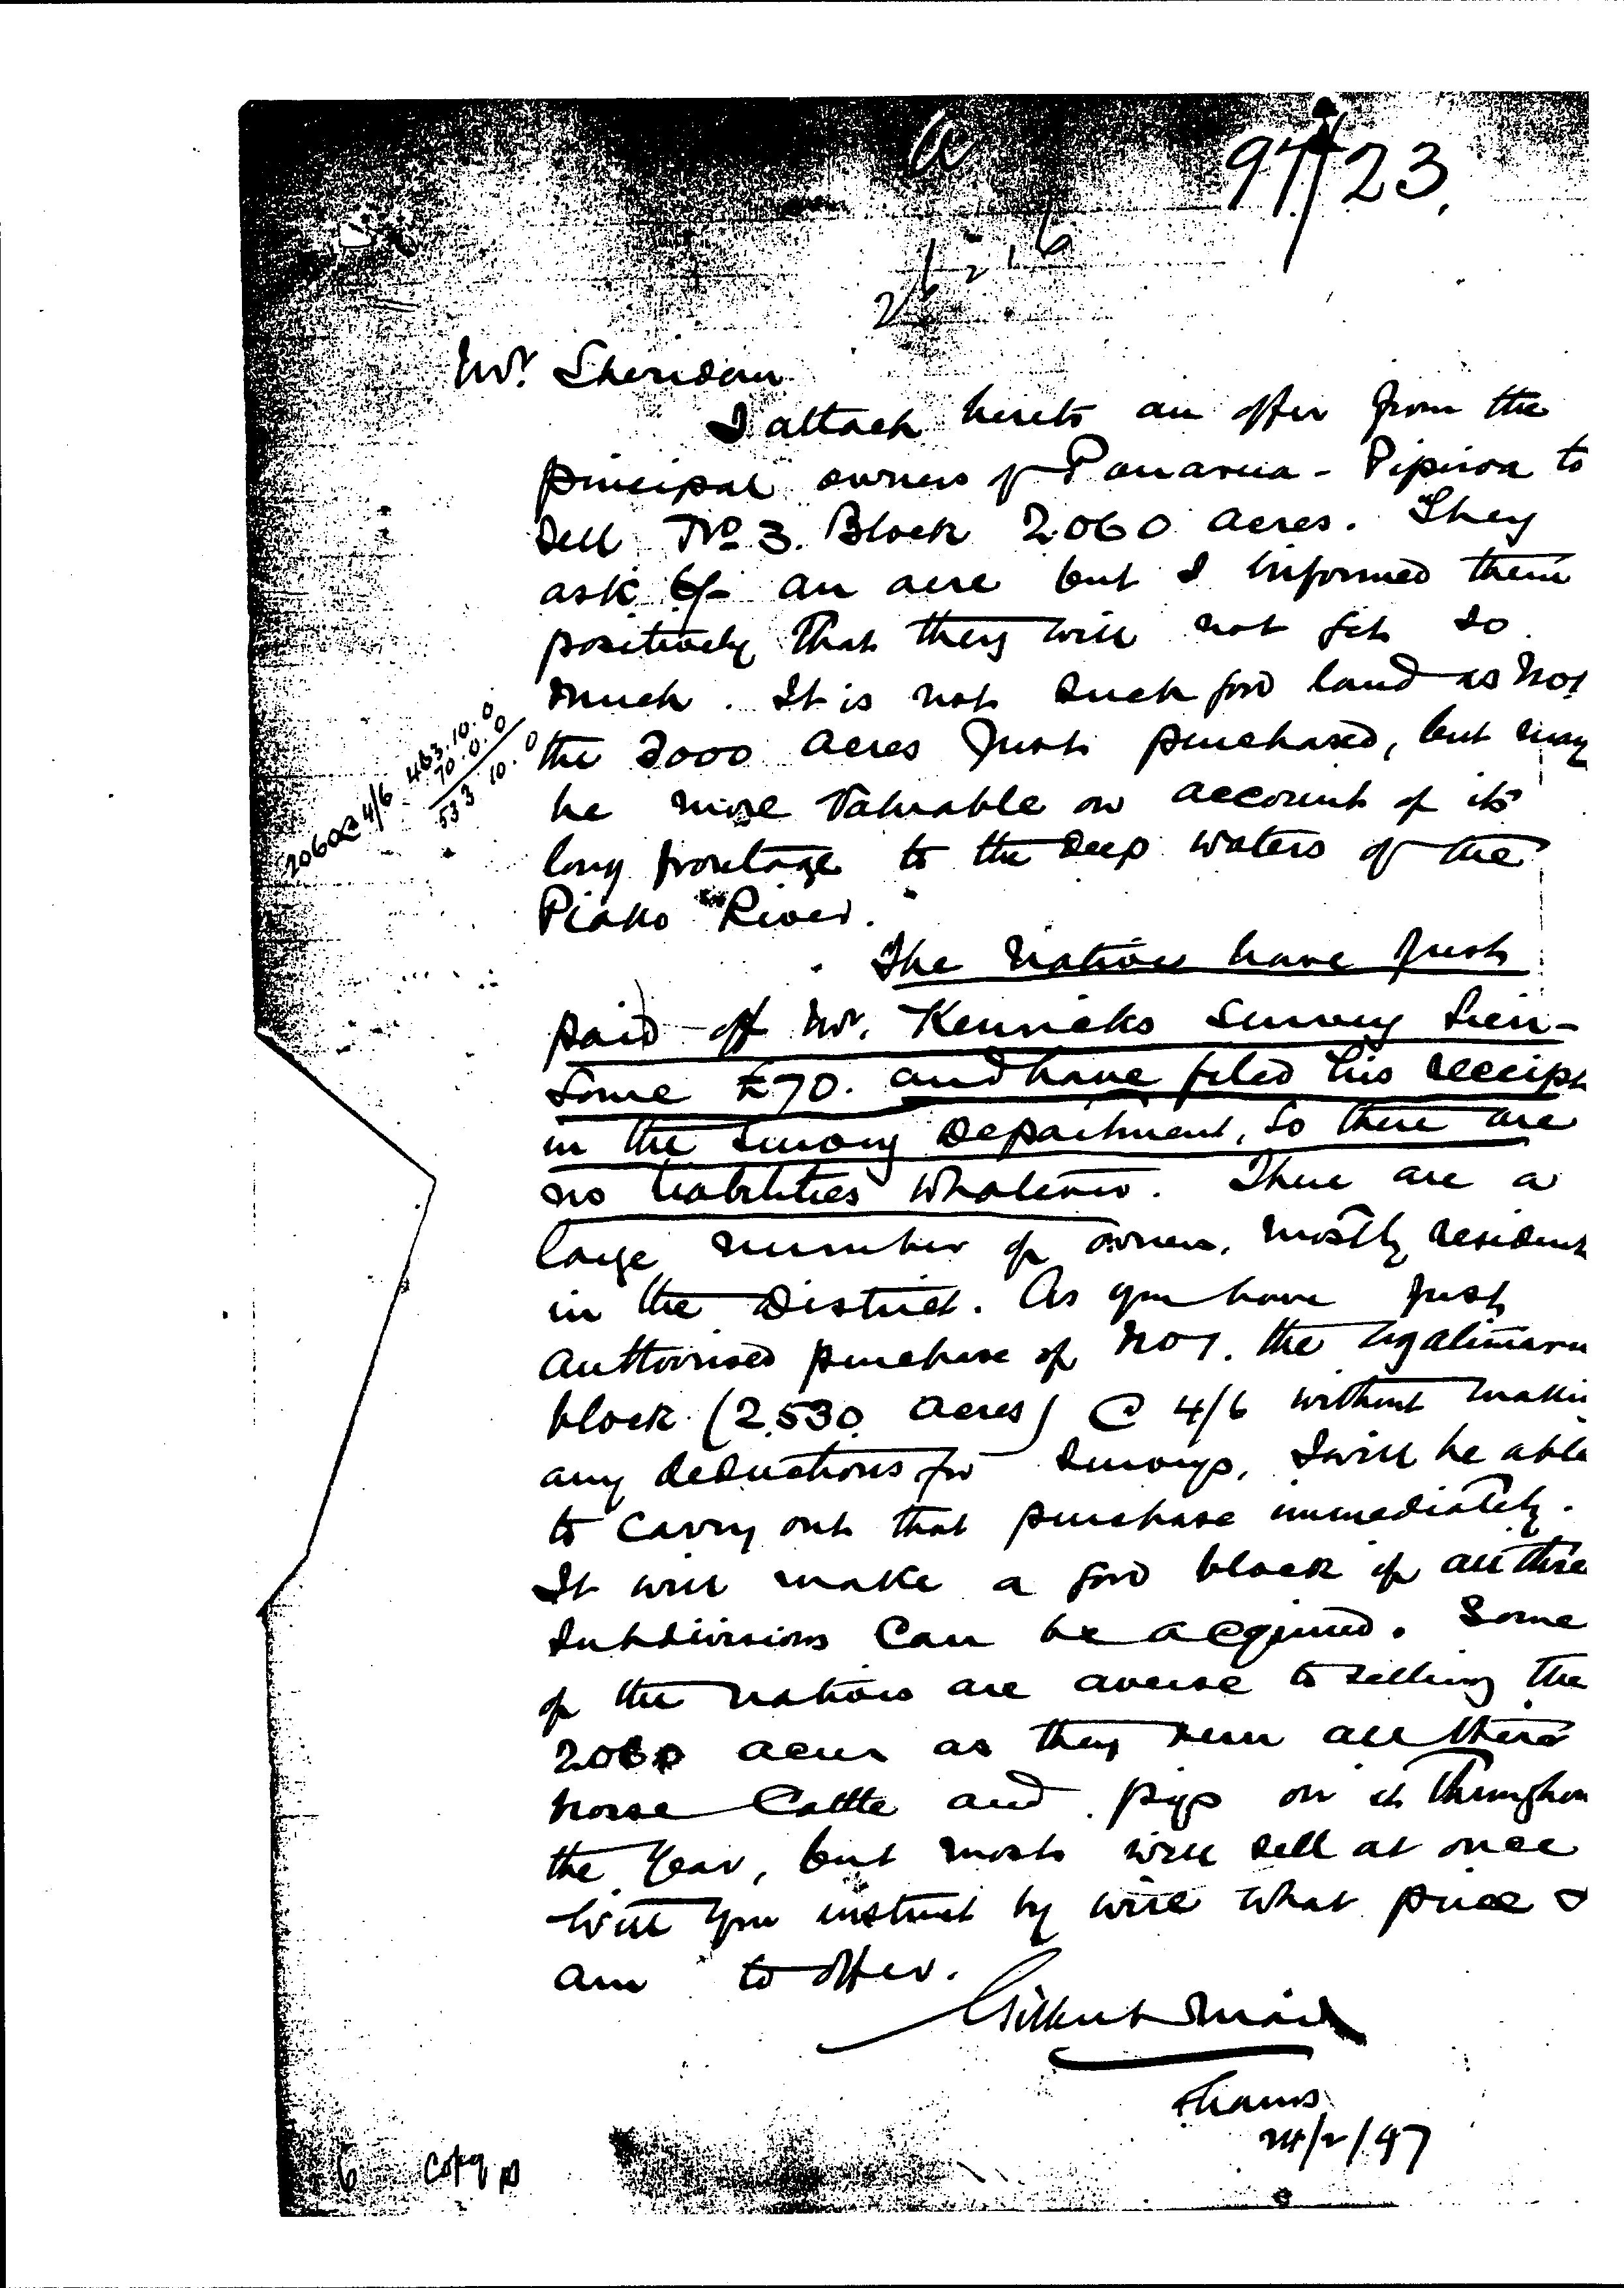 a
97/23.
Mr. Sheridan
I attach hereto an offer from the
principal owners of Pouarua - Pipiroa to
sell No 3. Block 2060 acres. They
ask 6/- an acre but I informed them
positively that they will not get so
much. It is not such good land as No 1
the 2000 acres just purchased, but may
be more valuable on account of its
long frontage to the deep waters of the
Piako River.
2060@ 4/6 463.10.0
70.0.0
533 10.0
The Natives have just
paid off Mr. Kenricks survey lien -
some £70. and have filed his receipt
in the Survey Department, so there are
no liabilities whatever. There are a
large number of owners, mostly resident
in the District. As you have just
authorised purchase of No 1. the Ngatimaru
block (2,530 acres) @ 4/6 without makin
any deductions for surveys, I will be able
to carry out that purchase immediately.
It will make a good block if all three
subdivisions can be acquired. Some
of the natives are averse to selling the
2060 acres as they run all their
horse cattle and pigs on it throughou
the year, but most will sell at once
Will you instruct by wire what price I
am to offer.
Gilbert Mair
Thames
24/2/97
6 Copy